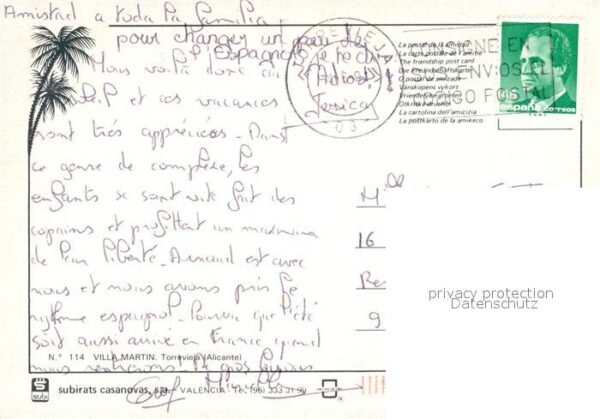 Amistad a toda la familia
pour changer un peu de
l'Espagne
Adios,
Jessica
Nous voilà donc au
soleil et ces vacances
sont très appréciées. Dans
ce genre de complexe, les
enfants se sont vite fait des
copains et profitent un maximum
de leur liberté. Arnaud est avec
nous et nous avons pris le
rythme espagnol. Pourvu que l'été
soit aussi arrivé en France quand
nous rentrerons. gros bisous
La postal de la amistad
La carte postale de l'amitié
The friendship post card
Die Freundschaftskarte
O postal da amizade
Vanskapens vykort
Vriendschapsgroeten
La cartolina dell'amicizia
La postkarto de la amikeco
TORREVIEJA
03
PONGO POSTAL
45
españa
CORREOS
Mlle
16
9
privacy protection
Datenschutz
N.° 114 VILLA MARTIN. Torrevieja (Alicante)
subi
subirats casanovas, s.a. VALENCIA - Tel. (96) 333 31 90